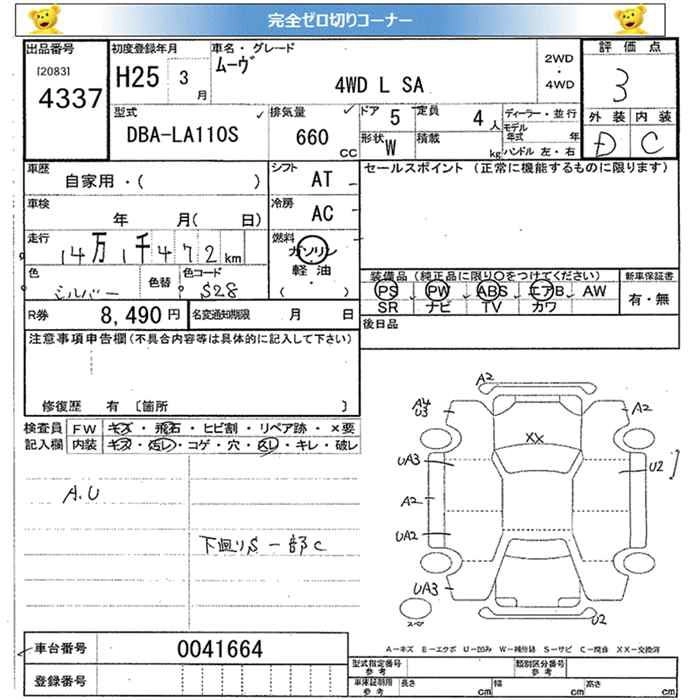 完全ゼロ切りコーナー
出品番号
[2083]
4337
初度登録年月
H25 3
月
車名・グレード
ムーヴ
4WD L SA
2WD
・
4WD
評価点
3
外装 内装
D C
型式
DBA-LA110S
排気量
660
CC
ドア 5
定員 4 人
形状 W
積載
kg
ディーラー・並行
モデル
年式 年
ハンドル 左・右
車歴
自家用・( )
シフト
AT
車検
年 月( 日)
冷房
AC
走行
14万1千472km
燃料
ガソリン
軽油
( ・ )
色
シルバー
色替
色コード
S28
R券 8,490円
名変通知期限 月 日
セールスポイント (正常に機能するものに限ります)
装備品(純正品に限り○をつけてください)
PS PW ABS エアB AW
SR ナビ TV カワ
新車保証書
有・無
後日品
注意事項申告欄(不具合内容等は具体的に記入して下さい)
修復歴 有 〔箇所 〕
検査員 FW キズ・飛石・ヒビ割・リペア跡・×要
記入欄 内装 キズ・汚レ・コゲ・穴・スレ・キレ・破レ
A.U
下廻りS 一部C
A2
A4
U3
A2
XX
UA3
U2
A2
UA2
UA3
スペア
U2
A−キズ E−エクボ U−凹み W−補修跡 S−サビ C−腐食 XX−交換済
車台番号 0041664
登録番号
型式指定番号
参考
類別区分番号
参考
車庫証明用
参考
長さ cm
幅 cm
高さ cm